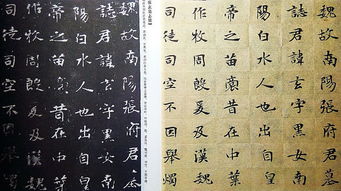 魏故南陽張府君墓
誌君諱玄字黑女南
陽白水人也出自皇
帝之苗裔昔在中葉
作牧周殷爰及漢魏
司徒司空不因舉燭
魏故南陽張府君墓
誌君諱玄字黑女南
陽白水人也出自皇
帝之苗裔昔在中葉
作牧周殷爰及漢魏
司徒司空不因舉燭